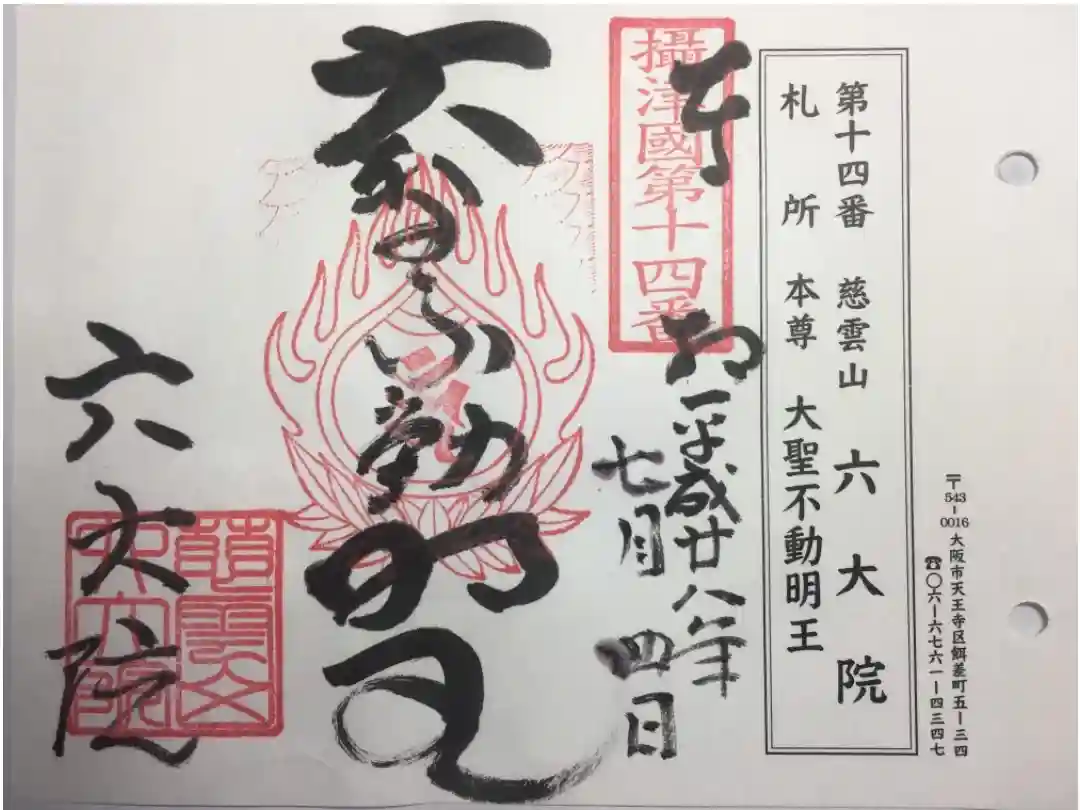 〒543-0016 大阪市天王寺区餌差町五ー三四
☎〇六ー六七六一ー四三四七
第十四番 慈雲山 六大院
札所 本尊 大聖不動明王
攝津國第十四番
奉拝
平成廿八年
七月四日
大聖不動明王
六大院
慈雲山